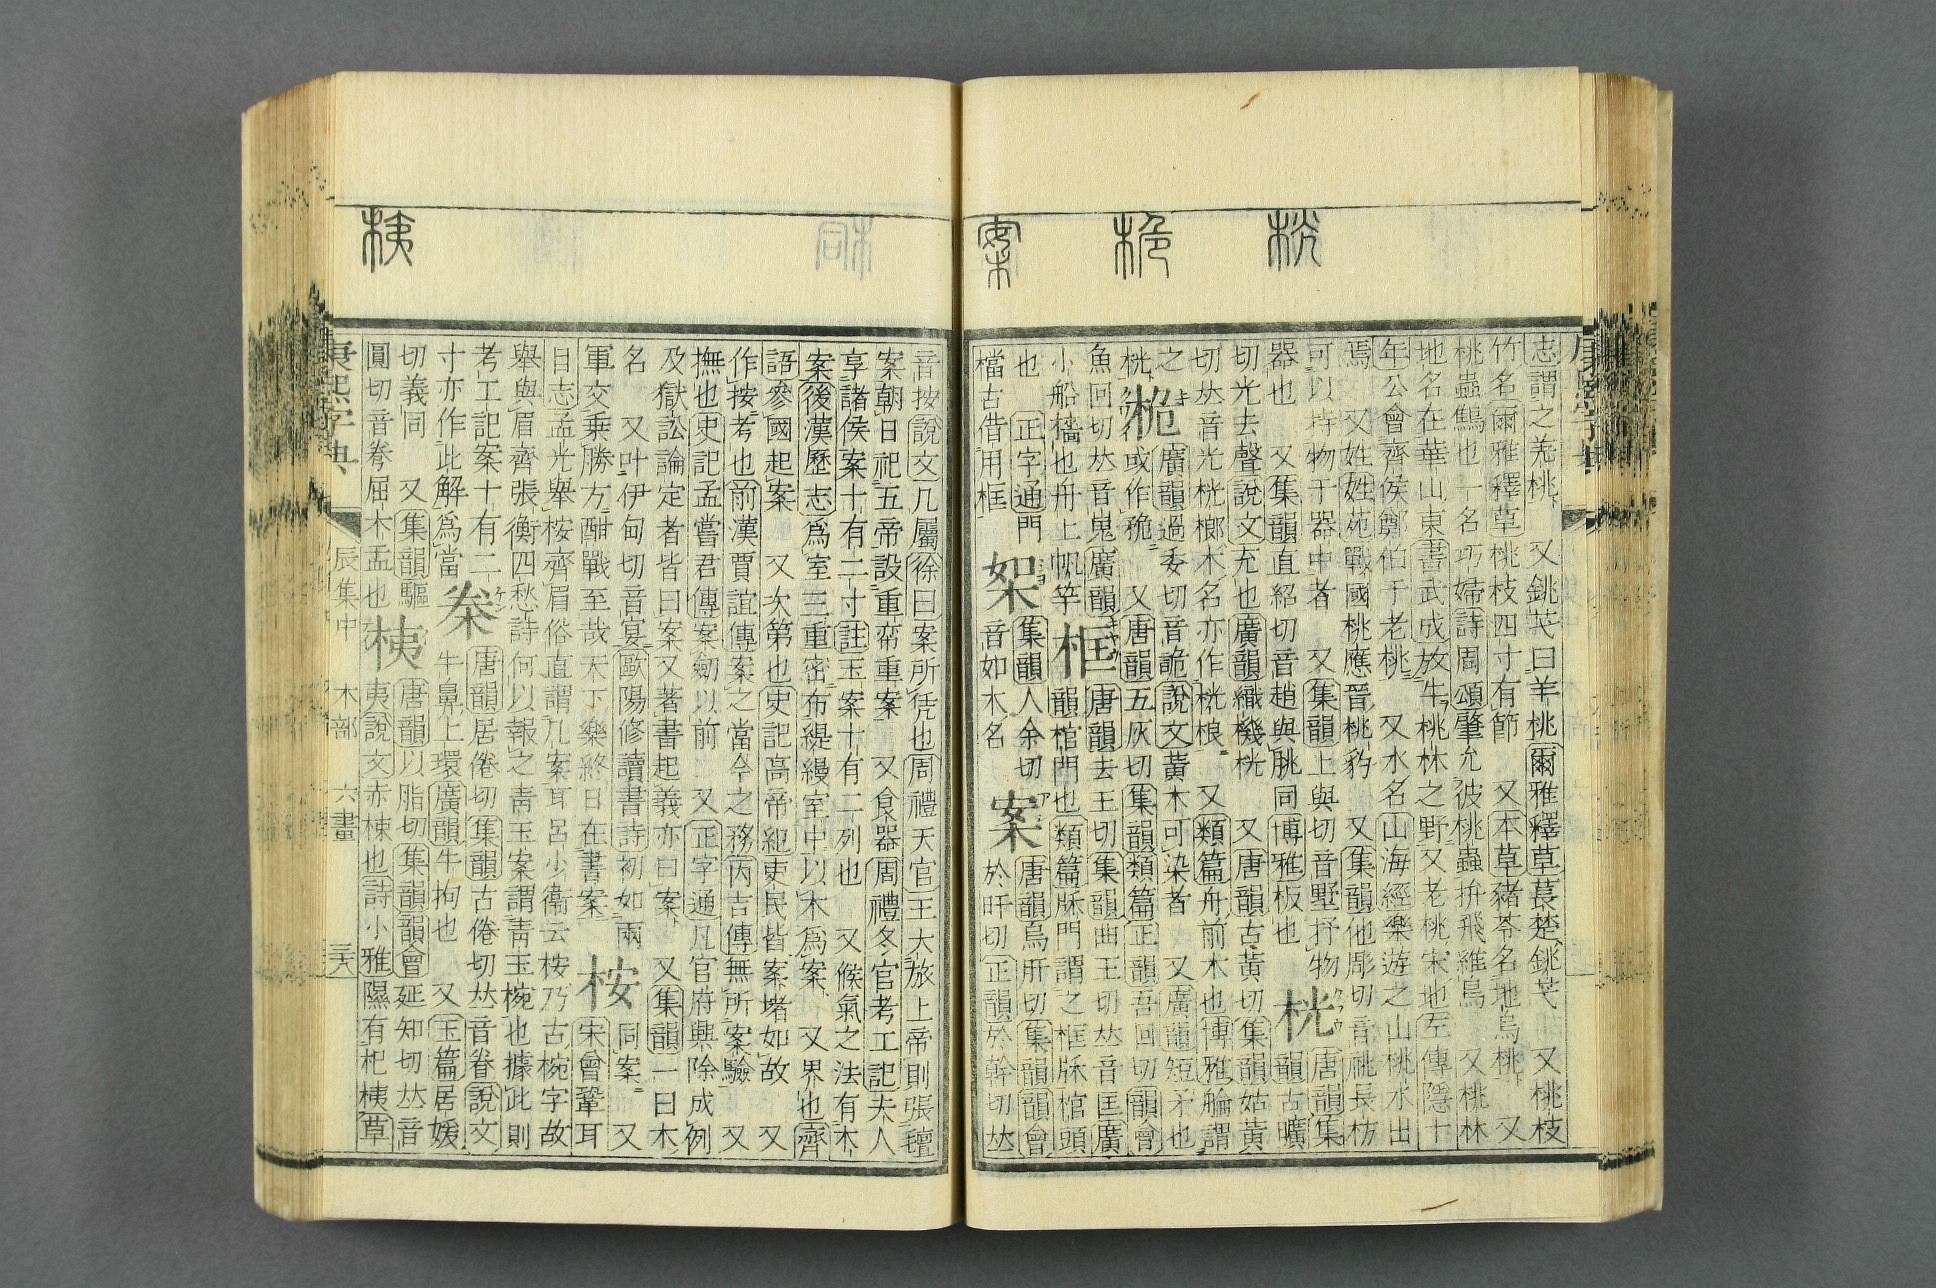 桄 桅 案
志謂之羌桃 又銚芅曰羊桃爾雅釋草萇楚銚芅 又桃枝
竹名爾雅釋草桃枝四寸有節 又本草豬苓名地烏桃 又
桃蟲鷦也一名巧婦詩周頌肇允彼桃蟲拚飛維鳥 又桃林
地名在華山東書武成放牛桃林之野又老桃宋地左傳隱十
年公會齊侯鄭伯于老桃 又水名山海經樂遊之山桃水出
焉 又姓姓苑戰國桃應晉桃豹 又集韻他彫切音祧長枋
可以抒物于器中者 又集韻上與切音墅抒物
器也 又集韻直紹切音趙與朓同博雅板也
桄
唐韻集
韻古曠
切光去聲說文充也廣韻織機桄 又唐韻古黃切集韻姑黃
切𠀤音光桄榔木名亦作桄桹 又類篇舟前木也博雅艡謂
之
桄
桅
廣韻過委切音詭說文黃木可染者 又廣韻短矛也
或作𥍨 又唐韻五灰切集韻類篇正韻吾回切韻會
魚回切𠀤音嵬廣韻
小船檣也舟上帆竿
框
唐韻去王切集韻曲王切𠀤音匡廣
韻棺門也類篇牀門謂之框牀棺頭
也 正字通門
檔古借用框
集韻人余切
音如木名
案
唐韻烏肝切集韻韻會
於旰切正韻於幹切𠀤
桋
音按說文几屬徐曰案所凭也周禮天官王大旅上帝則張氊
案朝日祀五帝設重帟重案 又食器周禮冬官考工記夫人
享諸侯案十有二寸註玉案十有二列也 又候氣之法有木
案後漢歷志爲室三重密布緹縵室中以木爲案 又界也齊
語參國起案 又次第也史記高帝紀吏民皆案堵如故 又
作按考也前漢賈誼傳案之當今之務丙吉傳無所案驗 又
撫也史記孟嘗君傳案劒以前 又正字通凡官府興除成例
及獄訟論定者皆曰案又著書起義亦曰案 又集韻一曰木
名 又叶伊甸切音宴歐陽修讀書詩初如兩
軍交乗勝方酣戰至哉天下樂終日在書案
桉
同案 又
宋曾鞏耳
目志孟光舉桉齊眉俗直謂几案耳呂少衞云桉乃古椀字故
舉與眉齊張衡四愁詩何以報之靑玉案謂靑玉椀也據此則
考工記案十有二
寸亦作此解爲當
桊
唐韻居倦切集韻古倦切𠀤音眷說文
牛鼻上環廣韻牛拘也 又玉篇居媛
切義同 又集韻驅
圓切音弮屈木盂也
桋
唐韻以脂切集韻韻會延知切𠀤音
夷說文赤棟也詩小雅隰有杞桋草
康熙字典 辰集中 木部 六畫